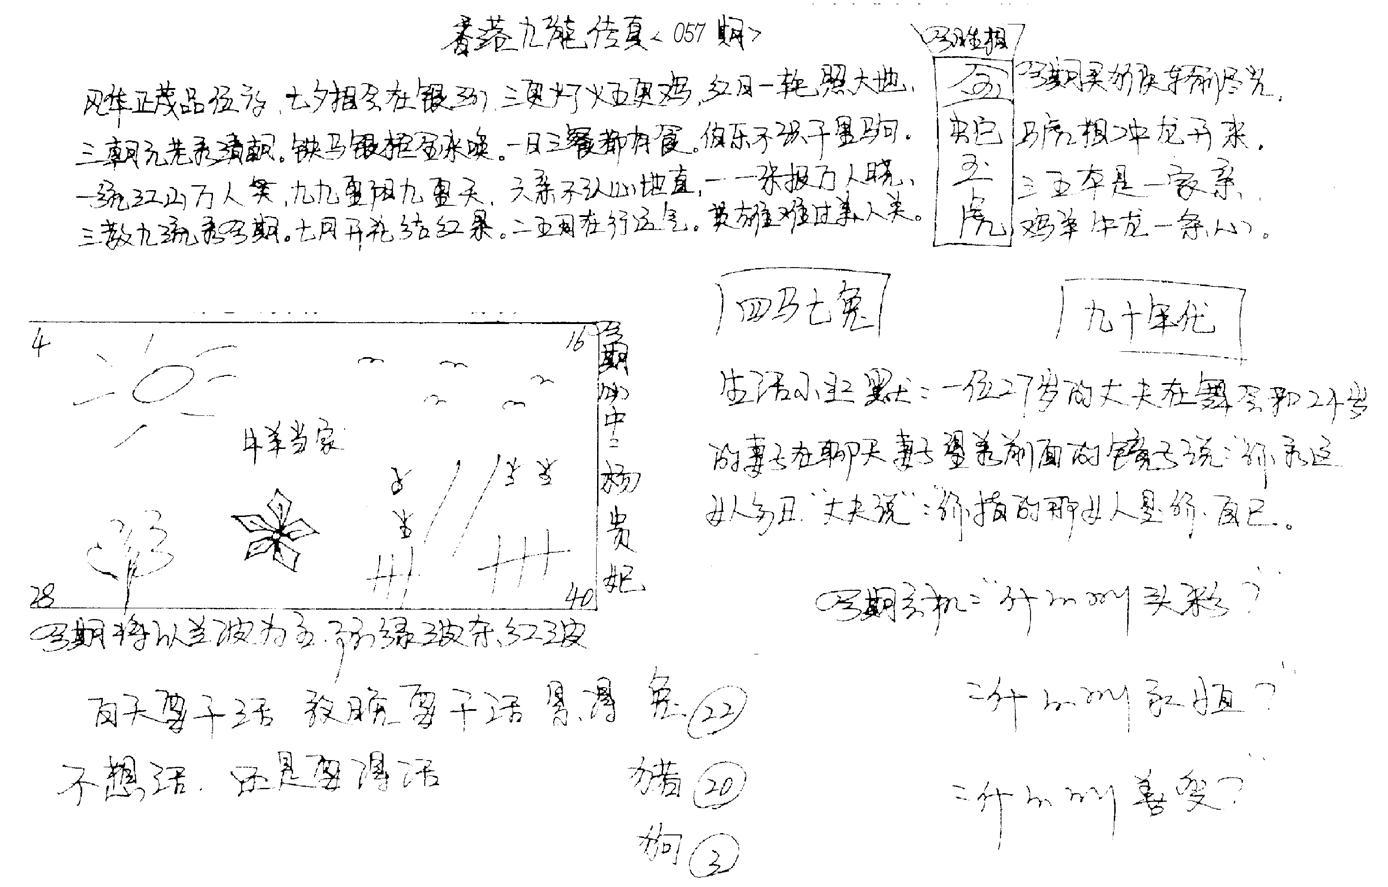 香港九龍传真<057期>
今期生相
风华正茂品位高,七夕相会在银河,三更灯火五更鸡,红日一轮照大地,
三朝元老秀清朝。铁马银枪金水唤。一日三餐都有食。伯乐不识千里马何。
一统江山万人笑,九九重阳九重天,六亲不认心地直,一一张报万人晓,
三教九流看今期。七月开花结红果。二五同在行运气。英雄难过美人关。
金
蛇
玉
虎
今期买
马虎相冲龙开来,
三五本是一家亲,
鸡羊牛龙一条心。
四马七兔
九十年代
4
16
牛羊当家
28
40
今期必中:杨贵妃
今期特以兰波为主,防绿波存,红波
生活小幽默:一位27岁的丈夫在舞会和24岁
的妻子在聊天妻子望着前面的镜子说:你看这
女人多丑"丈夫说":你指的那女人是你自己。
今期玄机:"什么叫头彩?"
:什么叫永恒?"
:什么叫善变?"
白天要干活 夜晚要干活 兔 22
不想活,还是要得活
猪 20
狗 3